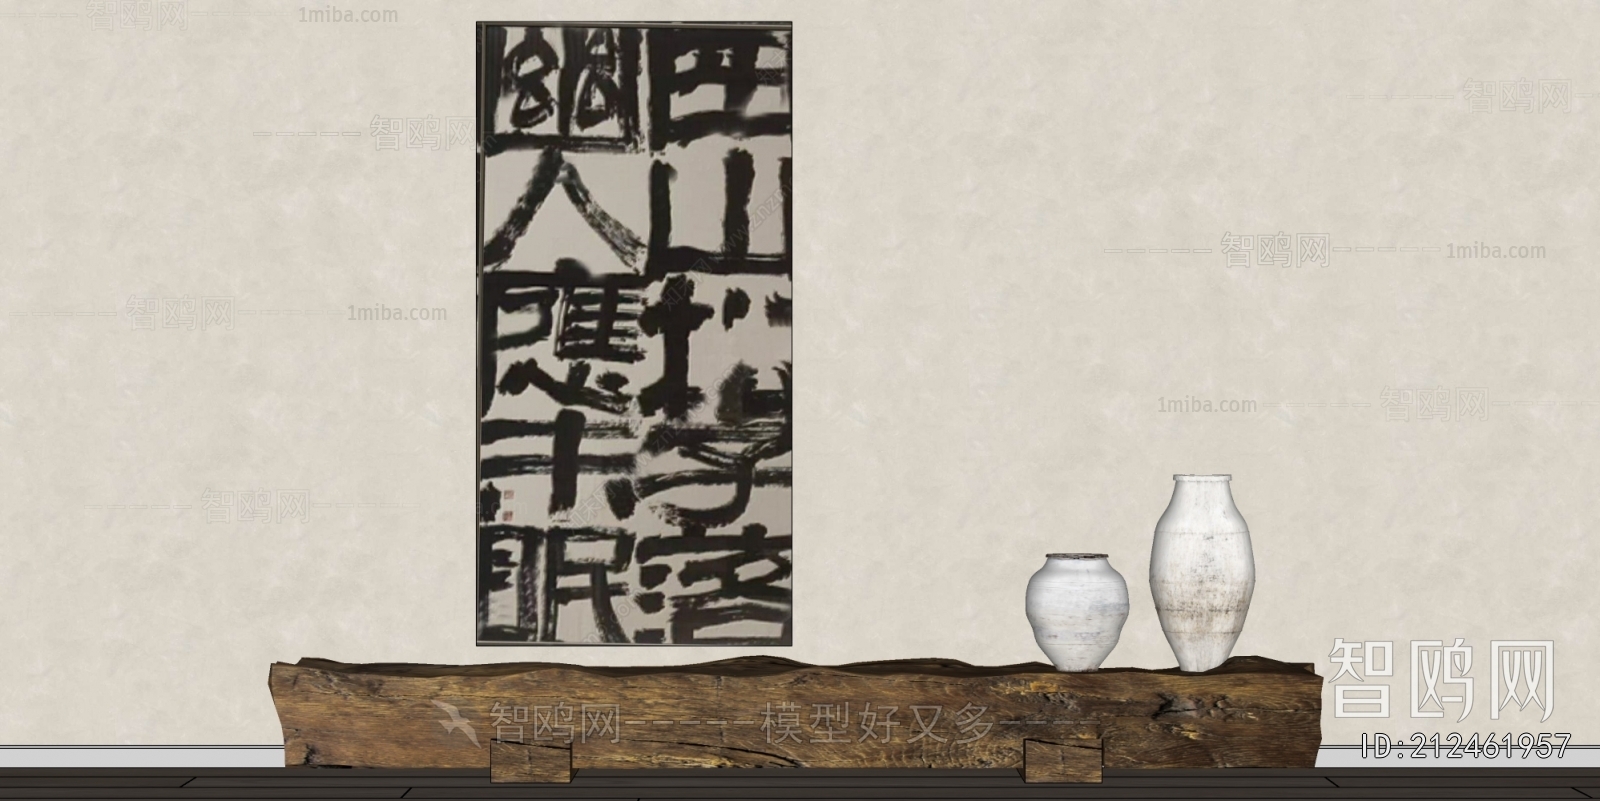 空山松子落
幽人應未眠
智鸥网
1miba.com
智鸥网
智鸥网
智鸥网
1miba.com
智鸥网
1miba.com
1miba.com
智鸥网
智鸥网
智鸥网-----模型好又多----
智鸥网
ID:212461957